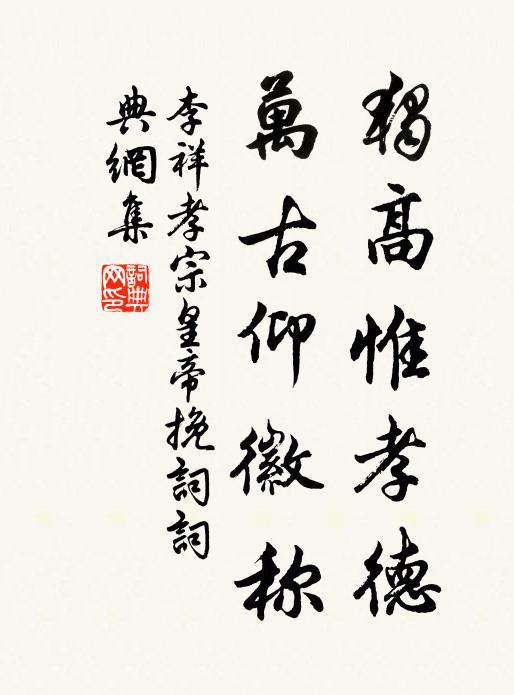 獨高惟孝德
萬古仰徽称
李祥孝宗皇帝挽詞詞
典網集
詞典网印